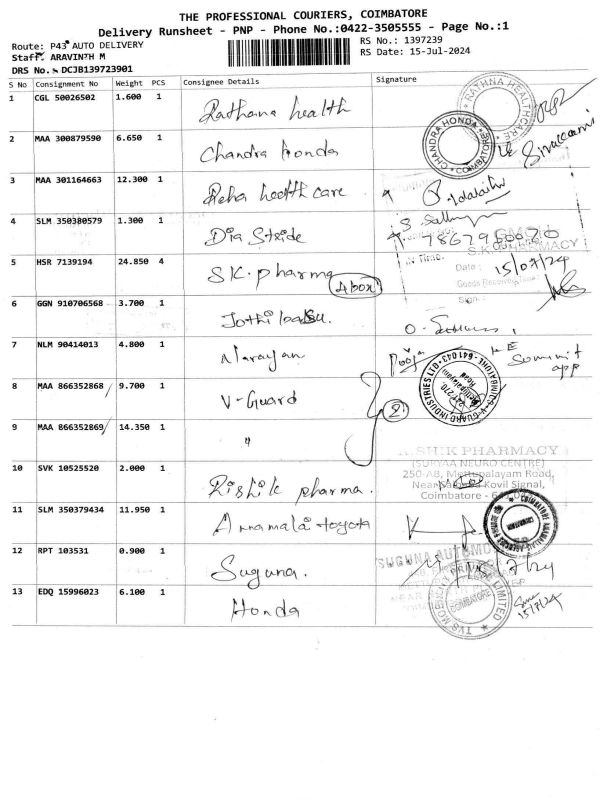 THE PROFESSIONAL COURIERS, COIMBATORE
Delivery Runsheet - PNP - Phone No.:0422-3505555 - Page No.:1
Route: P43 AUTO DELIVERY
RS No.: 1397239
Staff: ARAVINTH M
RS Date: 15-Jul-2024
DRS No. DCJB139723901
S No Consignment No Weight PCS Consignee Details Signature
1 CGL 50026502 1.600 1 Rathana health
RATHNA HEALTHCARE
2 MAA 300879590 6.650 1 Chandra Honda
CHANDRA HONDA COIMBATORE
3 MAA 301164663 12.300 1 Reha health care
4 SLM 350380579 1.300 1 Dia Stride
5 HSR 7139194 24.850 4 S.K. pharma 4 box
PHARMACY
In Time.
Date : 15/07/24
Goods Received
Sign :
6 GGN 910706568 3.700 1 Jothi basu
7 NLM 90414013 4.800 1 Narayan
Pooja
Summit
app
8 MAA 866352868 9.700 1 V-Guard
2
V-GUARD INDUSTRIES LTD
COIMBATORE - 641 043
9 MAA 866352869 14.350 1 "
10 SVK 10525520 2.000 1 Rishik pharma.
PHARMACY
(SURYAA NEURO CENTRE)
250-A8, Mettupalayam Road,
Kovil Signal,
Coimbatore -
11 SLM 350379434 11.950 1 Annamalai toyota
12 RPT 103531 0.900 1 Suguna.
SUGUNA AUTOMO
13 EDQ 15996023 6.100 1 Honda
TVS MOBILITY PRIVATE LIMITED
COIMBATORE
15/7/24